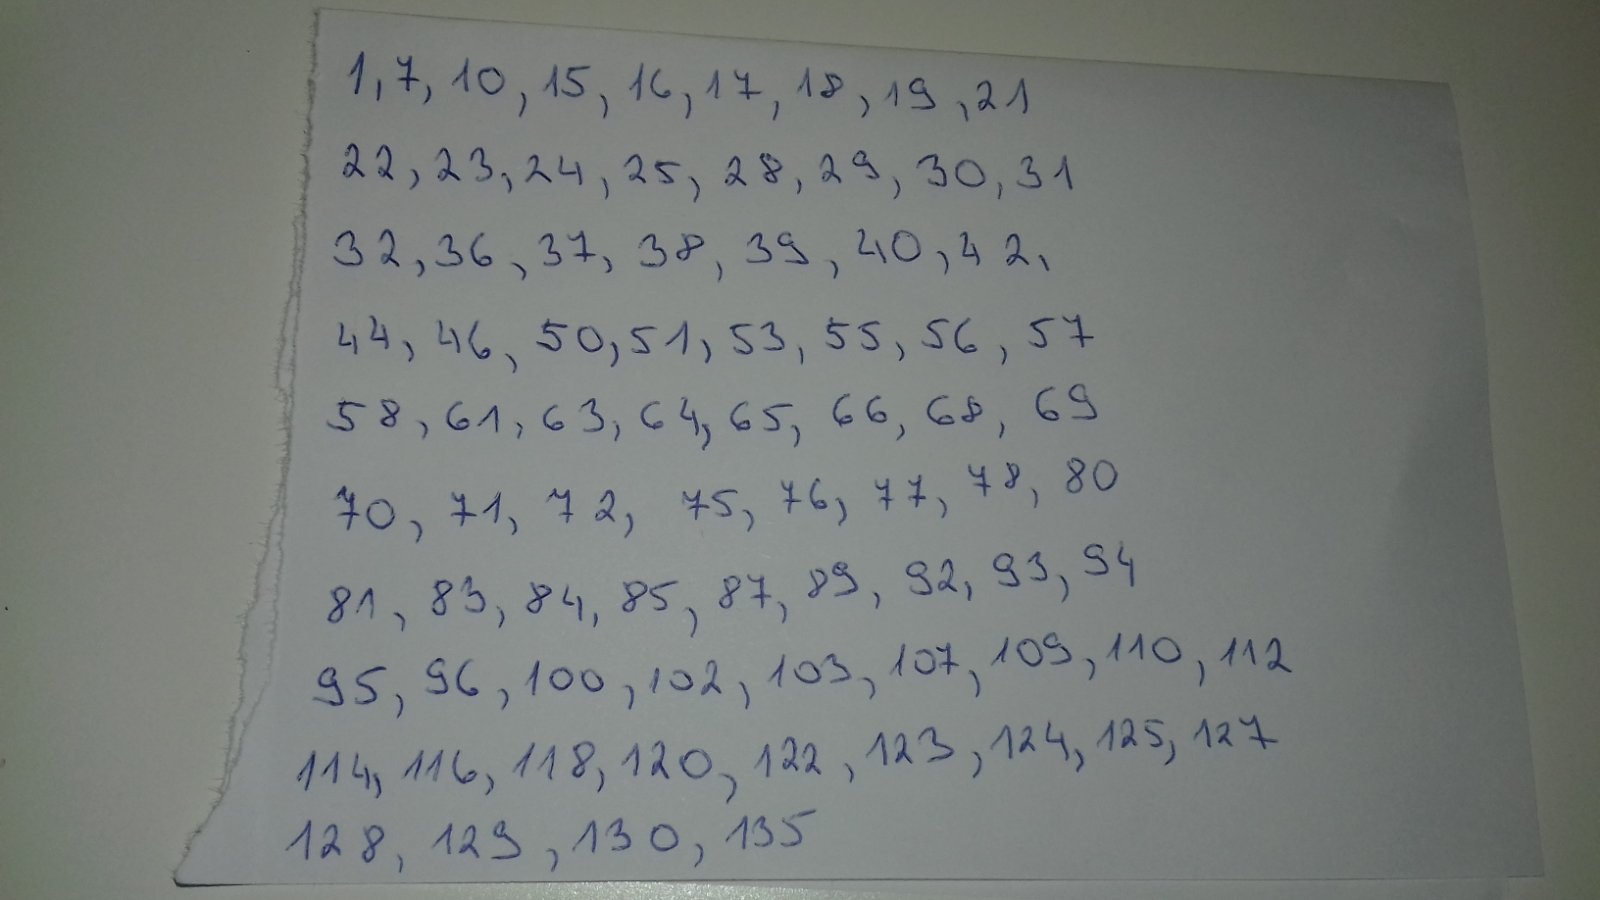 1, 7, 10, 15, 16, 17, 18, 19, 21
22, 23, 24, 25, 28, 29, 30, 31
32, 36, 37, 38, 39, 40, 42,
44, 46, 50, 51, 53, 55, 56, 57
58, 61, 63, 64, 65, 66, 68, 69
70, 71, 72, 75, 76, 77, 78, 80
81, 83, 84, 85, 87, 89, 92, 93, 94
95, 96, 100, 102, 103, 107, 109, 110, 112
114, 116, 118, 120, 122, 123, 124, 125, 127
128, 129, 130, 135